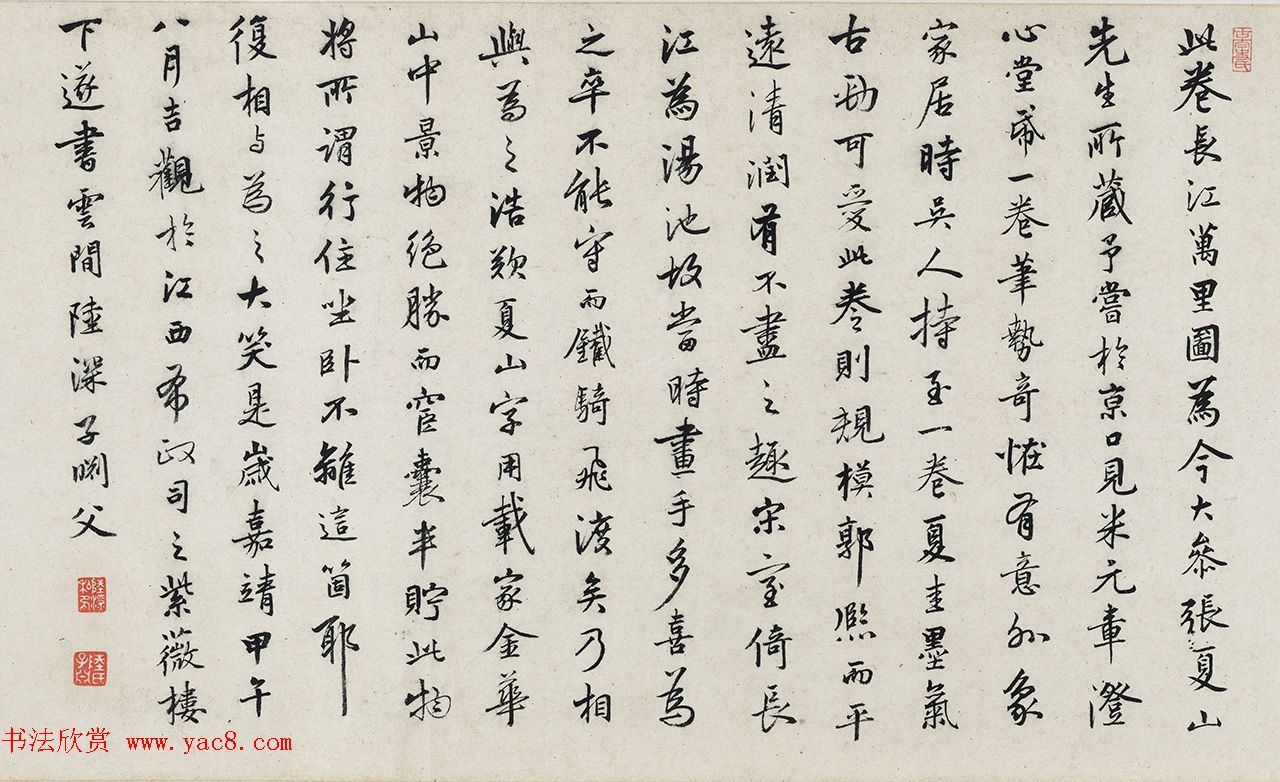 此卷長江萬里圖為今大參張夏山
先生所藏予嘗於京口見米元章澄
心堂紙一卷筆勢奇恠有意外象
家居時吳人持至一卷夏圭墨氣
古勁可愛此卷則規模郭熙而平
遠清潤有不盡之趣宋室倚長
江為湯池故當時畫手多喜為
之卒不能守而鐵騎飛渡矣乃相
與為之浩歎夏山字用載家金華
山中景物絕勝而宦囊半貯此物
將所謂行住坐卧不離這箇耶
復相与為之大笑是歲嘉靖甲午
八月吉觀於江西布政司之紫薇樓
下遂書雲間陸深子淵父
书法欣赏 www.yac8.com